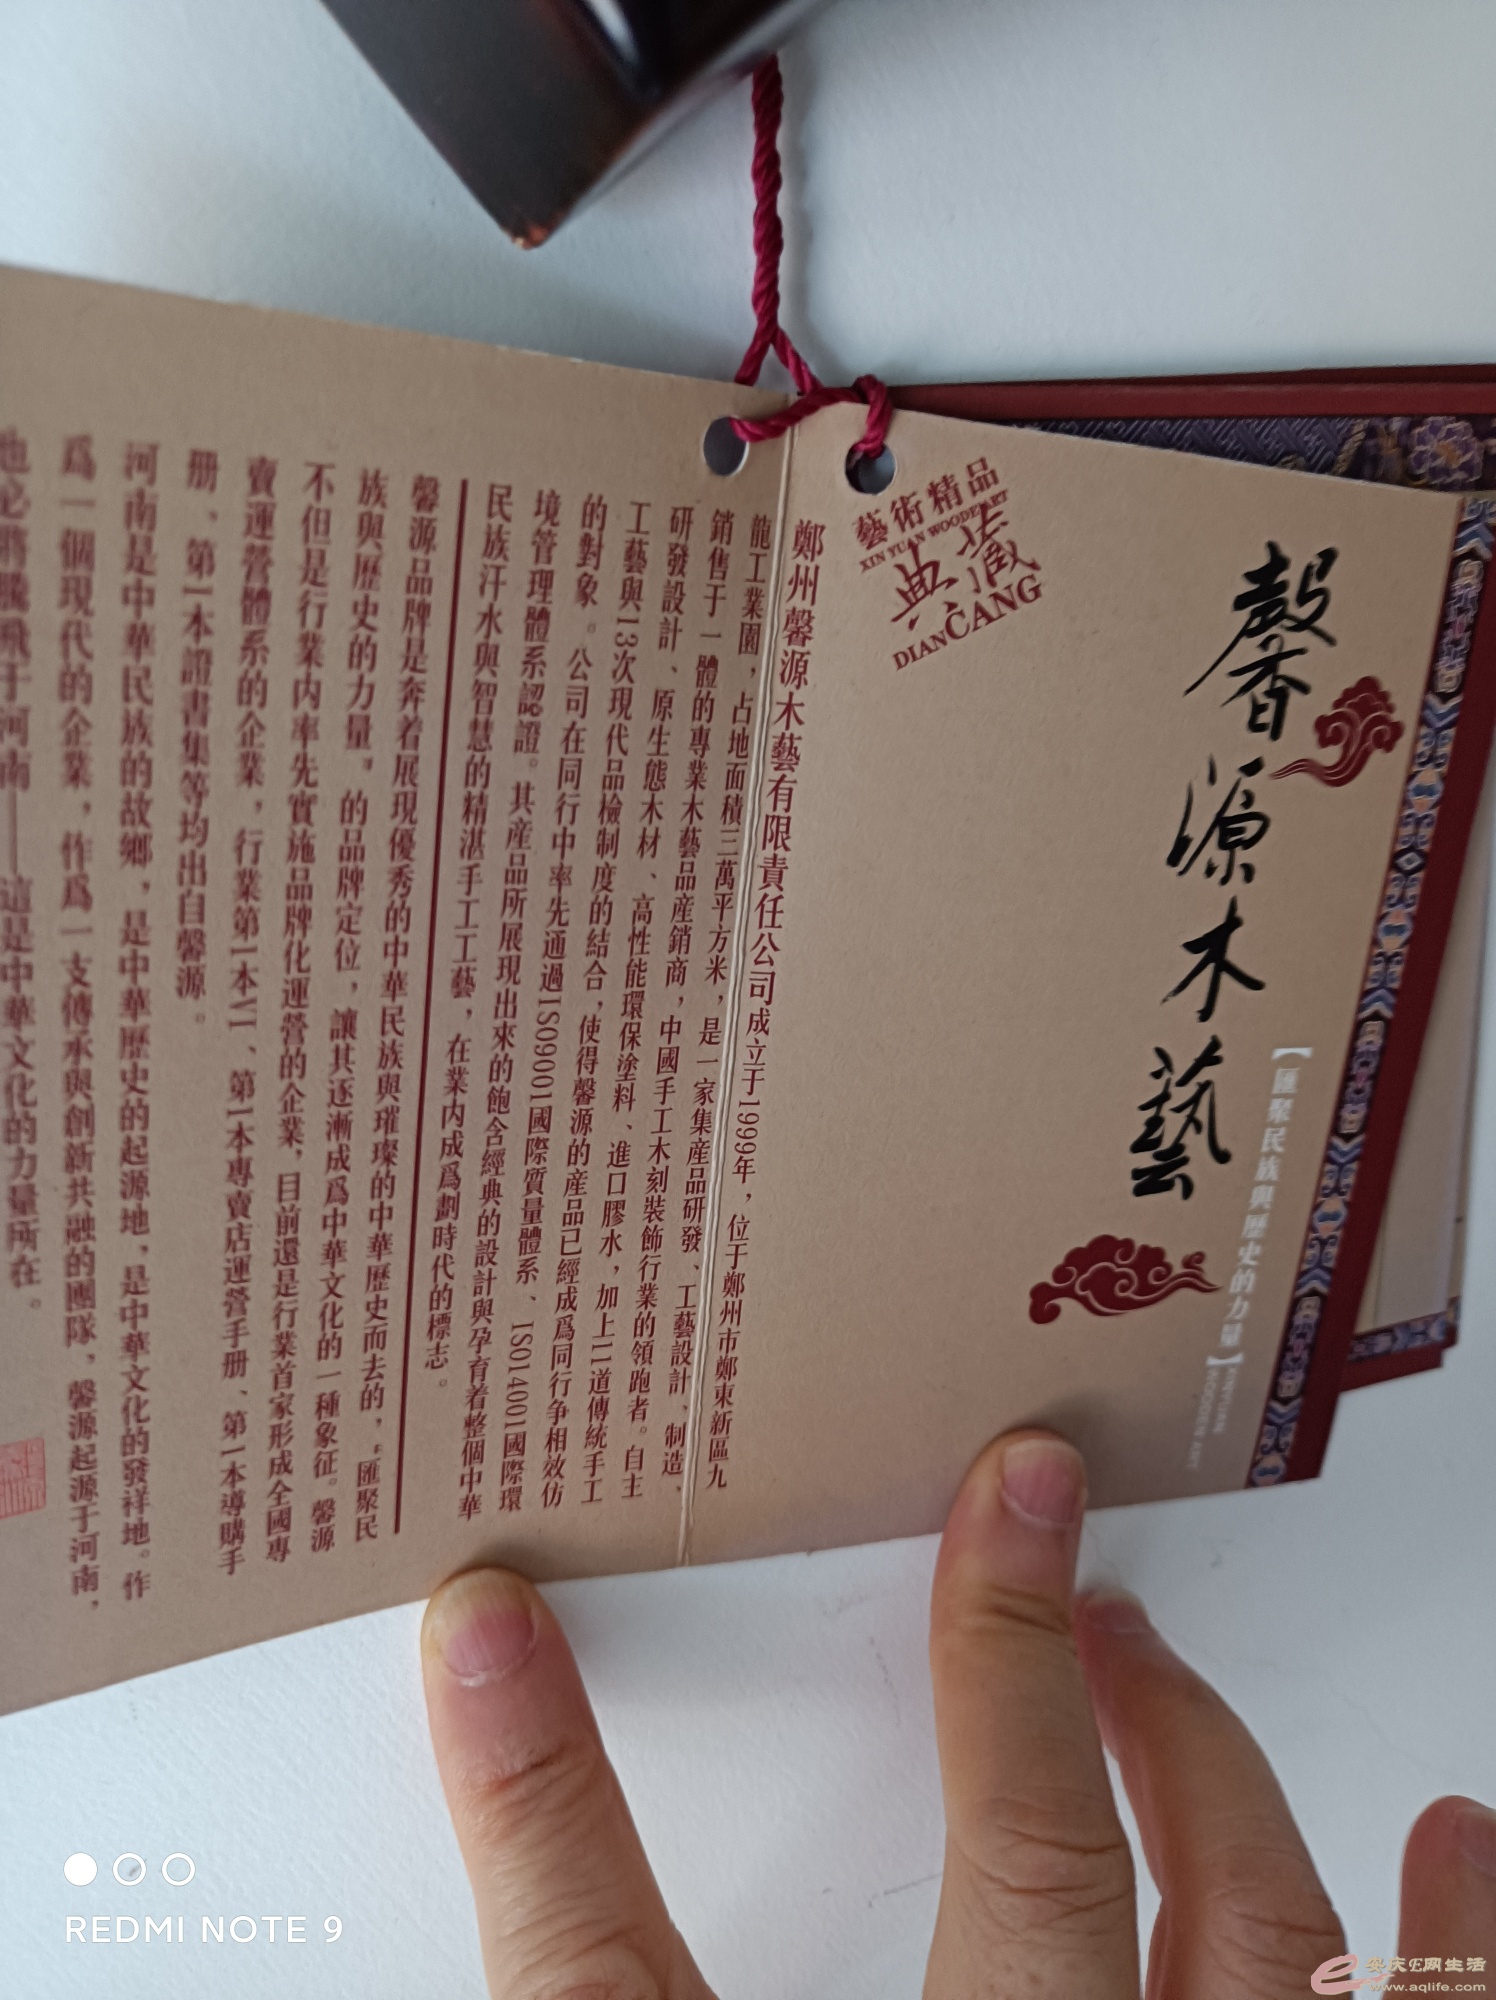 馨源木藝
【匯聚民族與歷史的力量】XINYUAN
WOODEN ART
藝術精品
XIN YUAN WOODEN ART
典藏
DIANCANG
鄭州馨源木藝有限責任公司成立于1999年，位于鄭州市鄭東新區九
龍工業園，占地面積三萬平方米，是一家集産品研發、工藝設計、制造、
銷售于一體的專業木藝品産銷商，中國手工木刻裝飾行業的領跑者。自主
研發設計、原生態木材、高性能環保塗料、進口膠水，加上11道傳統手工
工藝與13次現代品檢制度的結合，使得馨源的産品已經成爲同行争相效仿
的對象。公司在同行中率先通過ISO9001國際質量體系、ISO14001國際環
境管理體系認證。其産品所展現出來的飽含經典的設計與孕育着整個中華
民族汗水與智慧的精湛手工工藝，在業内成爲劃時代的標志。
馨源品牌是奔着展現優秀的中華民族與璀璨的中華歷史而去的，“匯聚民
族與歷史的力量”的品牌定位，讓其逐漸成爲中華文化的一種象征。馨源
不但是行業内率先實施品牌化運營的企業，目前還是行業首家形成全國專
賣運營體系的企業，行業第1本VI、第1本專賣店運營手册、第1本導購手
册、第1本證書集等均出自馨源。
河南是中華民族的故鄉，是中華歷史的起源地，是中華文化的發祥地。作
爲一個現代的企業，作爲一支傳承與創新共融的團隊，馨源起源于河南，
也必將騰飛于河南——這是中華文化的力量所在。
REDMI NOTE 9
安庆E网生活
www.aqlife.com